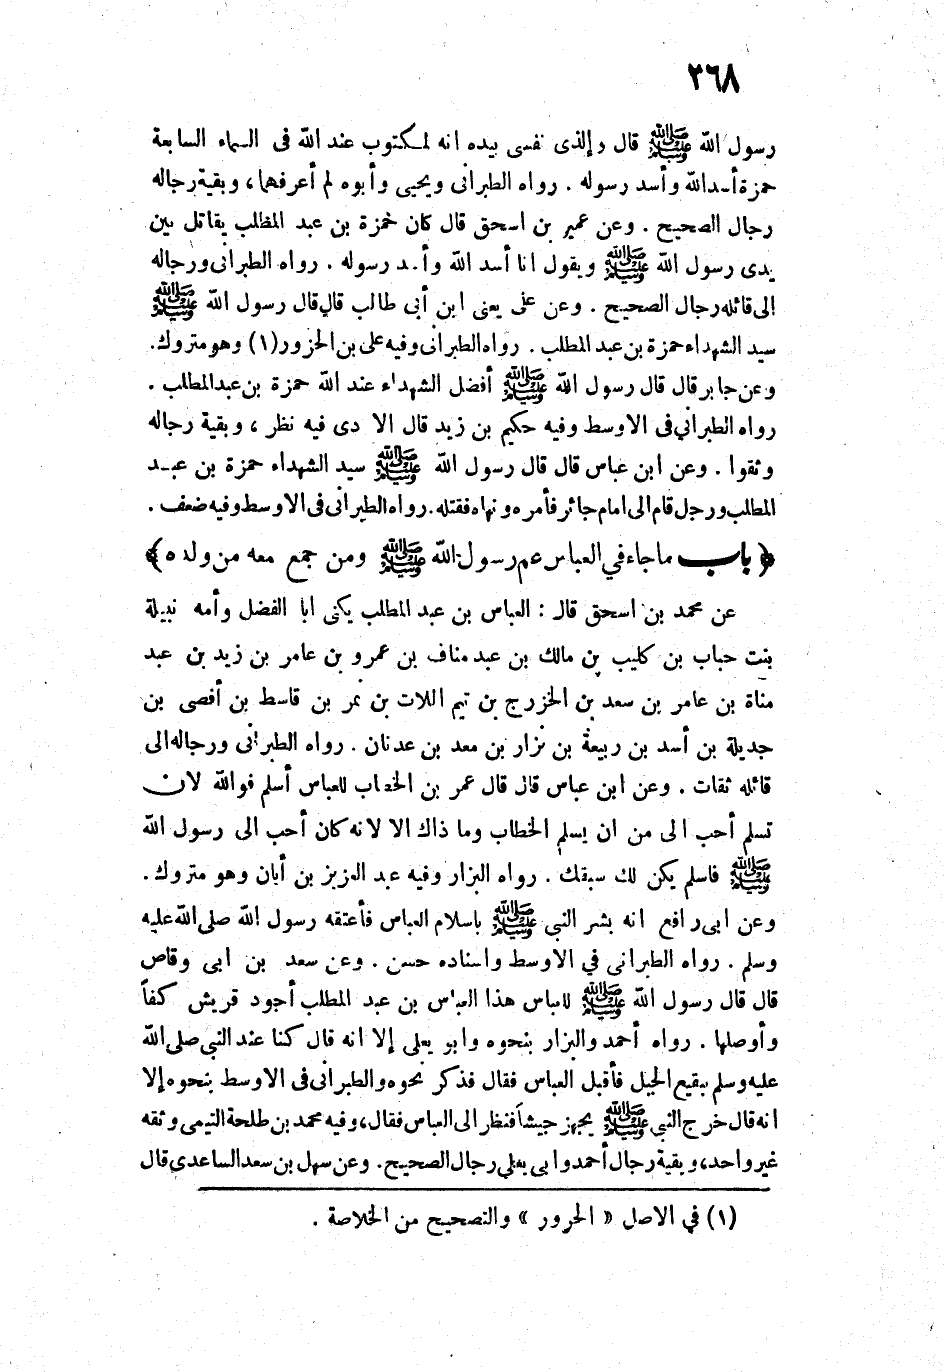 ٢٦٨
رسول الله ﷺ قال والذى نفسى بيده انه لمكتوب عند الله فى السماء السابعة
حمزة أسد الله وأسد رسوله . رواه الطبرانى ويحيى وأبوه لم أعرفهما، وبقية رجاله
رجال الصحيح . وعن عمير بن اسحق قال كان حمزة بن عبد المطلب يقاتل بين
يدى رسول الله ﷺ ويقول انا أسد الله وأسد رسوله . رواه الطبرانى ورجاله
الى قائله رجال الصحيح . وعن على يعنى ابن أبى طالب قال قال رسول الله ﷺ
سيد الشهداء حمزة بن عبد المطلب . رواه الطبرانى وفيه على بن الحزور(١) وهو متروك.
وعن جابر قال قال رسول الله ﷺ أفضل الشهداء عند الله حمزة بن عبد المطلب .
رواه الطبراني فى الاوسط وفيه حكيم بن زيد قال الازدى فيه نظر ، وبقية رجاله
وثقوا . وعن ابن عباس قال قال رسول الله ﷺ سيد الشهداء حمزة بن عبد
المطلب ورجل قام الى امام جائر فأمره ونهاه فقتله. رواه الطبرانى فى الاوسط وفيه ضعف .
﴿ باب ما جاء في العباس عم رسول الله ﷺ ومن جمع معه من ولده ﴾
عن محمد بن اسحق قال : العباس بن عبد المطلب يكنى ابا الفضل وأمه نبيلة
بنت حباب بن كليب بن مالك بن عبد مناف بن عمرو بن عامر بن زيد بن عبد
مناة بن عامر بن سعد بن الخزرج بن تيم اللات بن نمر بن قاسط بن أفصى بن
جديلة بن أسد بن ربيعة بن نزار بن معد بن عدنان . رواه الطبرانى ورجاله الى
قائله ثقات . وعن ابن عباس قال قال عمر بن الخطاب للعباس أسلم فوالله لان
تسلم أحب الى من ان يسلم الخطاب وما ذاك الا لانه كان أحب الى رسول الله
ﷺ فاسلم يكن لك سبقك . رواه البزار وفيه عبد العزيز بن أبان وهو متروك.
وعن ابى رافع انه بشر النبي ﷺ باسلام العباس فأعتقه رسول الله صلى الله عليه
وسلم . رواه الطبرانى في الاوسط واسناده حسن . وعن سعد بن ابى وقاص
قال قال رسول الله ﷺ للعباس هذا العباس بن عبد المطلب أجود قريش كفاً
وأوصلها . رواه أحمد والبزار بنحوه وابو يعلى إلا انه قال كنا عند النبي صلى الله
عليه وسلم ببقيع الخيل فأقبل العباس فقال فذكر نحوه والطبرانى فى الاوسط بنحوه إلا
انه قال خرج النبي ﷺ يجهز جيشاً فنظر الى العباس فقال، وفيه محمد بن طلحة التيمى وثقه
غير واحد، وبقية رجال أحمد وابى يعلى رجال الصحيح. وعن سهل بن سعد الساعدى قال
(١) في الاصل « الحرور » والتصحيح من الخلاصة .